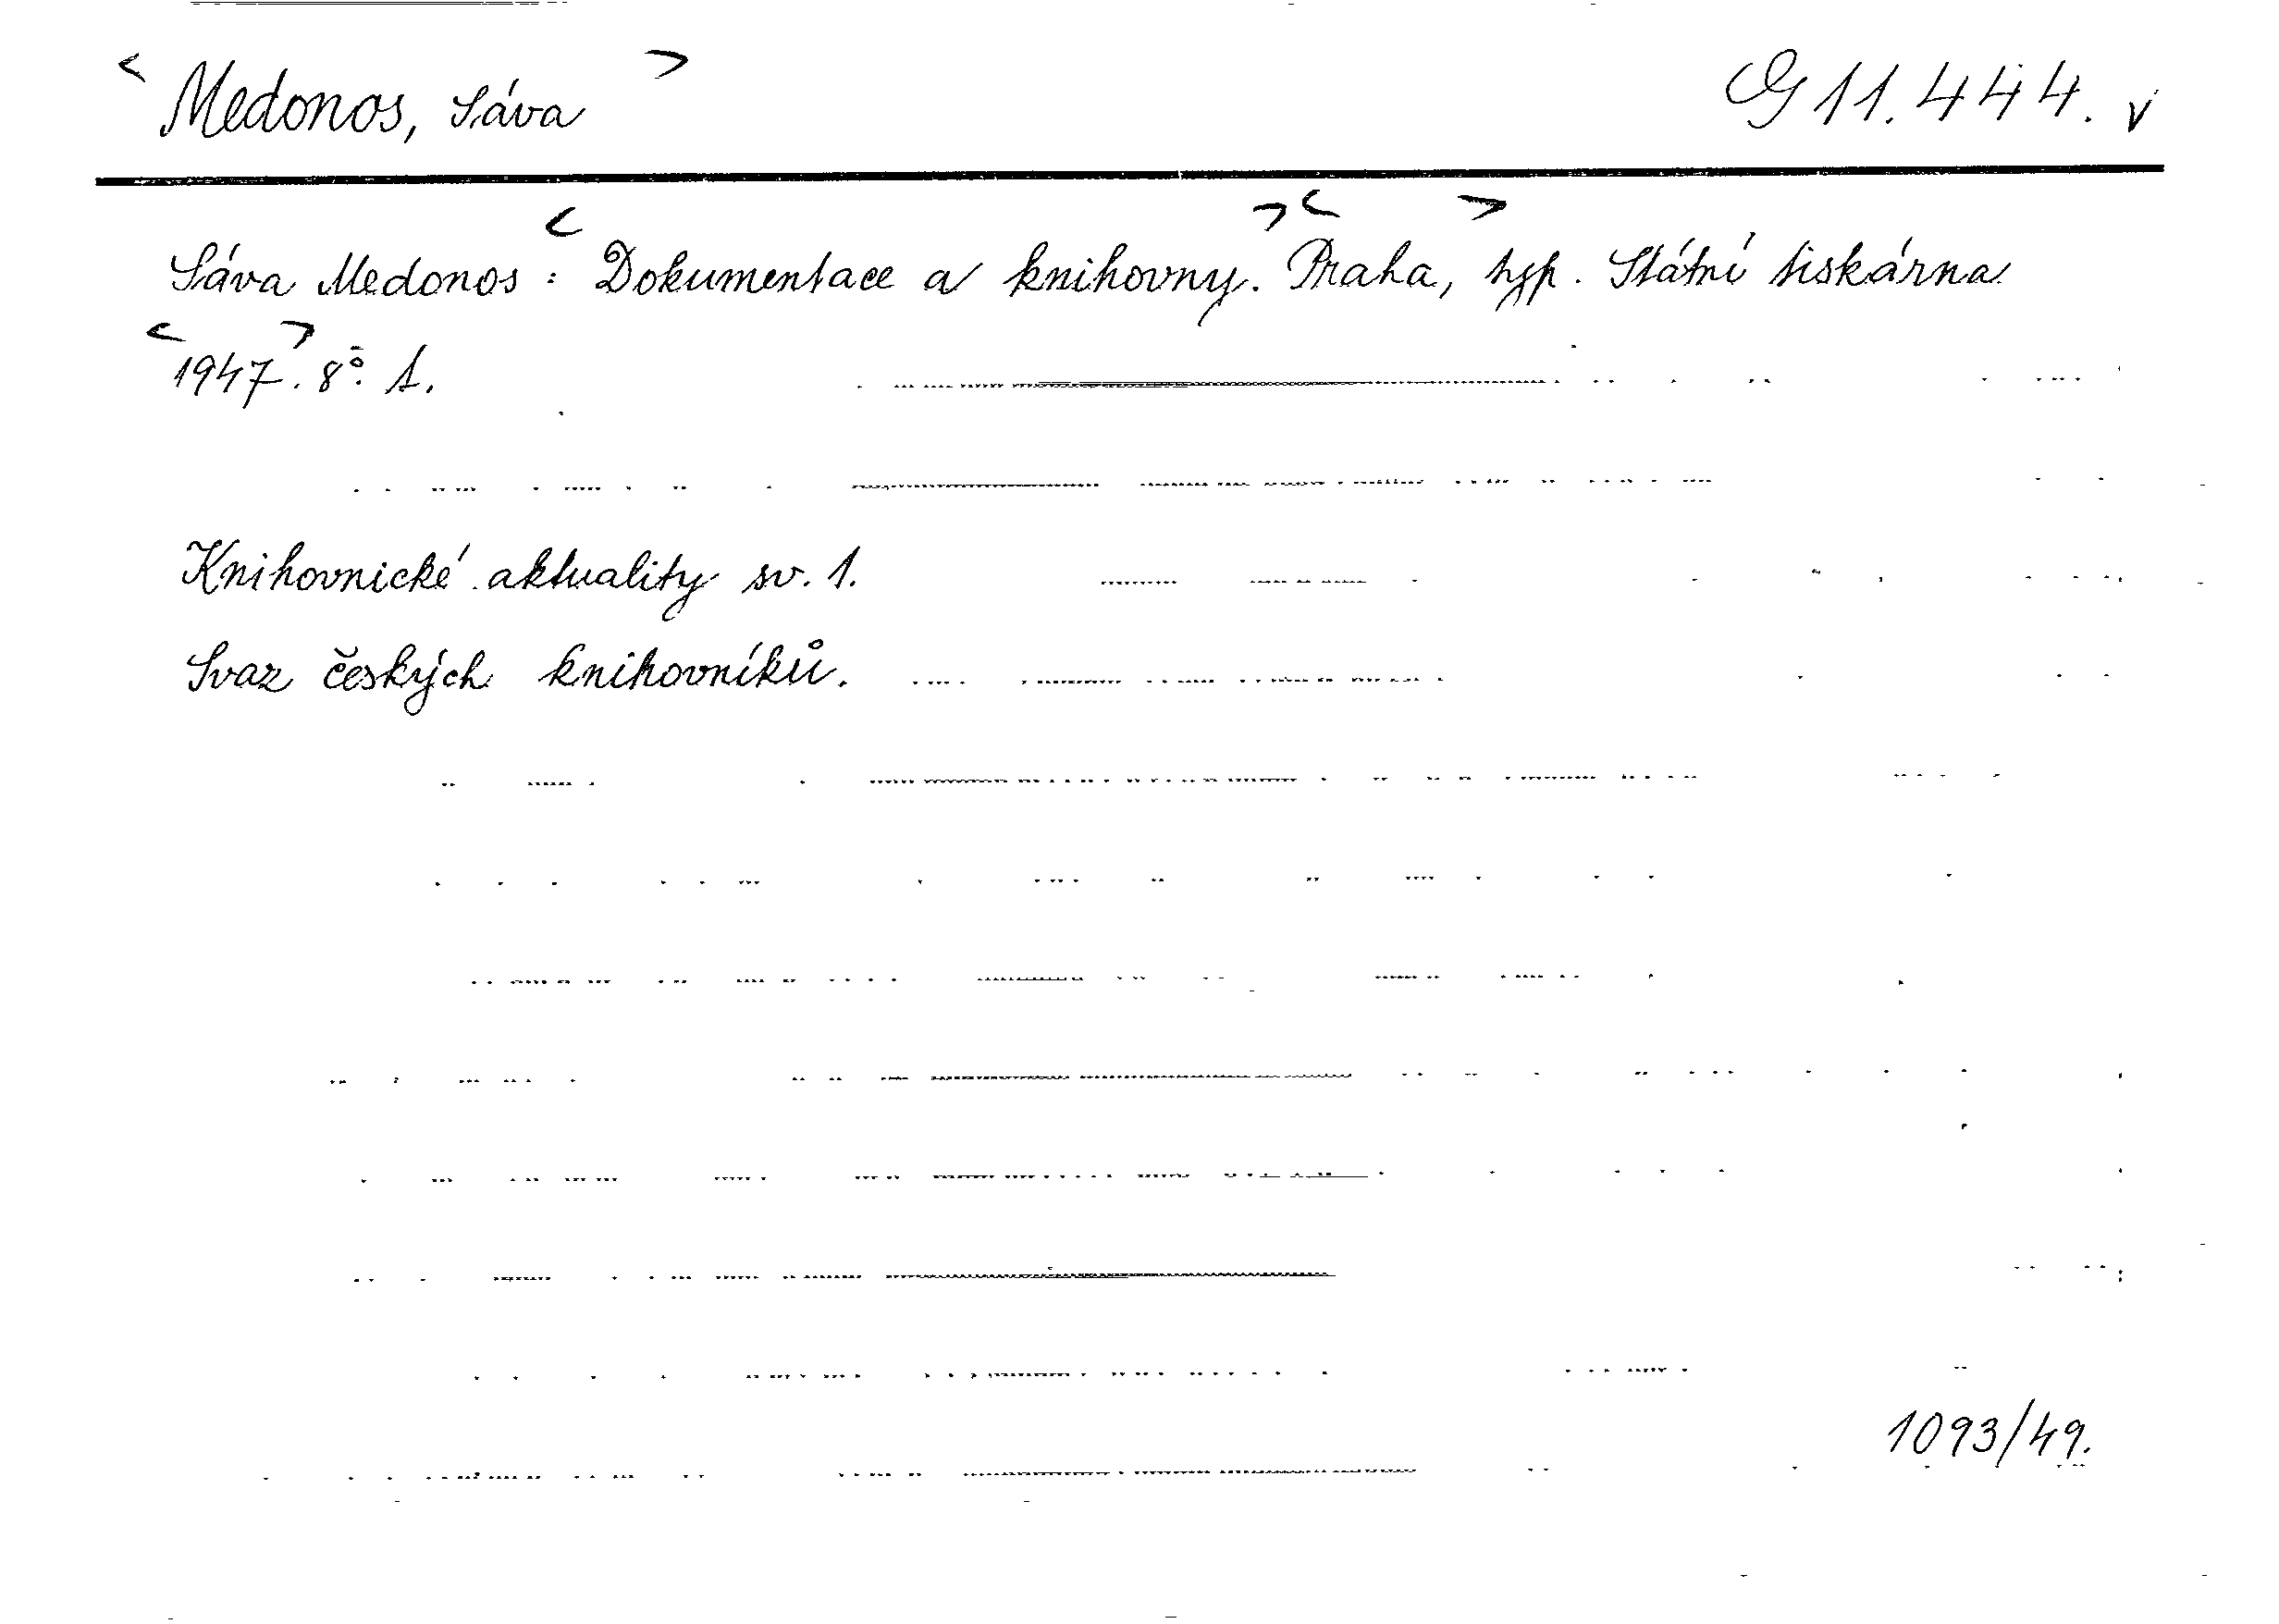 < Medonos, Sáva > G 11.444. v
Sáva Medonos : < Dokumentace a knihovny. > < Praha, > typ. Státní tiskárna
< 1947 > . 8°. 1.
Knihovnické aktuality sv. 1.
Svaz českých knihovníků.
1093/49.